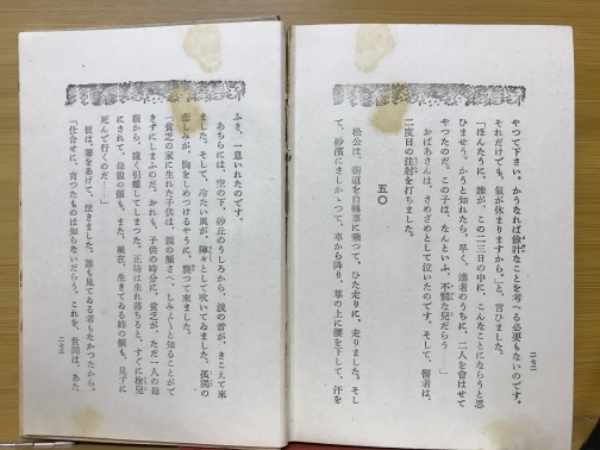 やつて下さい。かうなれば餘計なことを考へる必要もないのです。
それだけでも、氣が休まりますから。」と、言ひました。
「ほんたうに、誰が、この二三日の中に、こんなことにならうと思
ひませう。かうと知れたら、早く、達者のうちに、二人を會はせて
やつたのだ。この子は、なんといふ、不憫な兒だらう……」
おばあさんは、さめざめとして泣いたのです。そして、醫者は、
二度目の注射を打ちました。
五〇
松公は、街道を自轉車に乘つて、ひた走りに、走りました。そし
て、砂濱にさしかゝつて、車から降り、草の上に腰を下して、汗を
二七二
ふき、一息いれたのです。
あちらには、空の下、砂丘のうしろから、波の音が、きこえて來
ました。そして、冷たい風が、陣々として吹いてゐました。孤獨の
悲しみが、胸をしめつけるやうに、襲つて來ました。
「貧乏の家に生れた子供は、親の顏さへ、しみ〴〵と知ることがで
きずにしまふのだ。おれも、子供の時分に、貧乏が、ただ一人の母
親から、遠く引離してしまつた。正坊は生れ落ちると、すぐに捨兒
にされて、母親の顏も、また、現在、生きてゐる姉の顏も、見ずに
死んで行くのだ……」
彼は、聲をあげて、泣きました。誰も見てゐる者もなかつたから。
「仕合せに、育つたものは知らないだらう。これを、世間は、あた
二七三